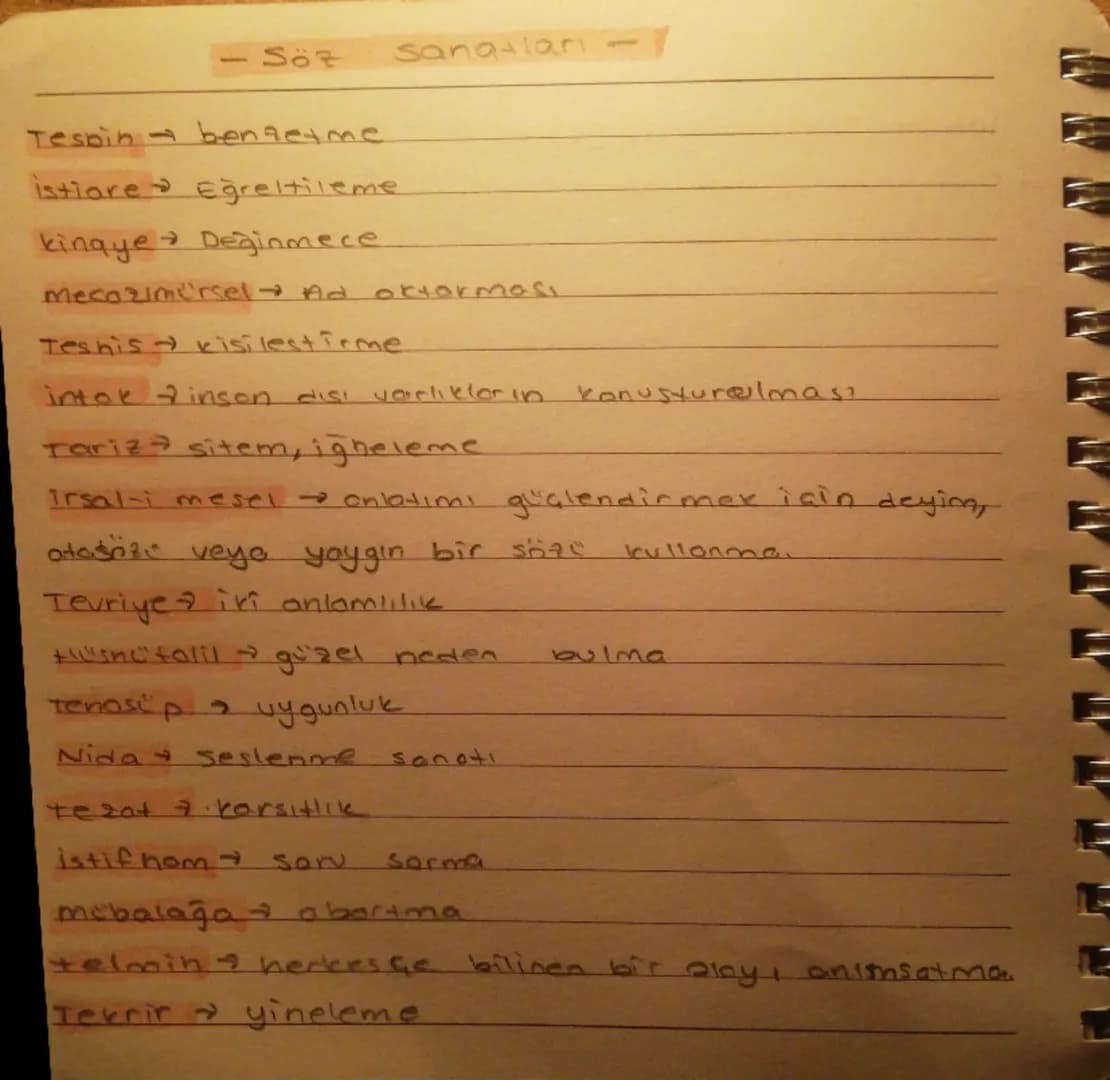 - Söz Sanatları -
Tesbih → benzetme
istiare → Eğreltileme
kinaye → Değinmece
mecazımürsel → Ad aktarması
Teshis → kisilestirme
intak → insan dısı varlıkların konusturulması
Tariz → sitem, iğneleme
irsal-i mesel → anlatımı güçlendirmek için deyim,
atasözü veya yaygın bir sözü kullanma.
Tevriye → iki anlamlılık
Hüsnütalil → güzel neden bulma
Tenasüp → uygunluk
Nida → Seslenme sanatı
tezat → karsıtlık
istifham → soru sorma
mübalağa → abartma
telmih → herkesçe bilinen bir olayı anımsatma.
Tekrir → yineleme